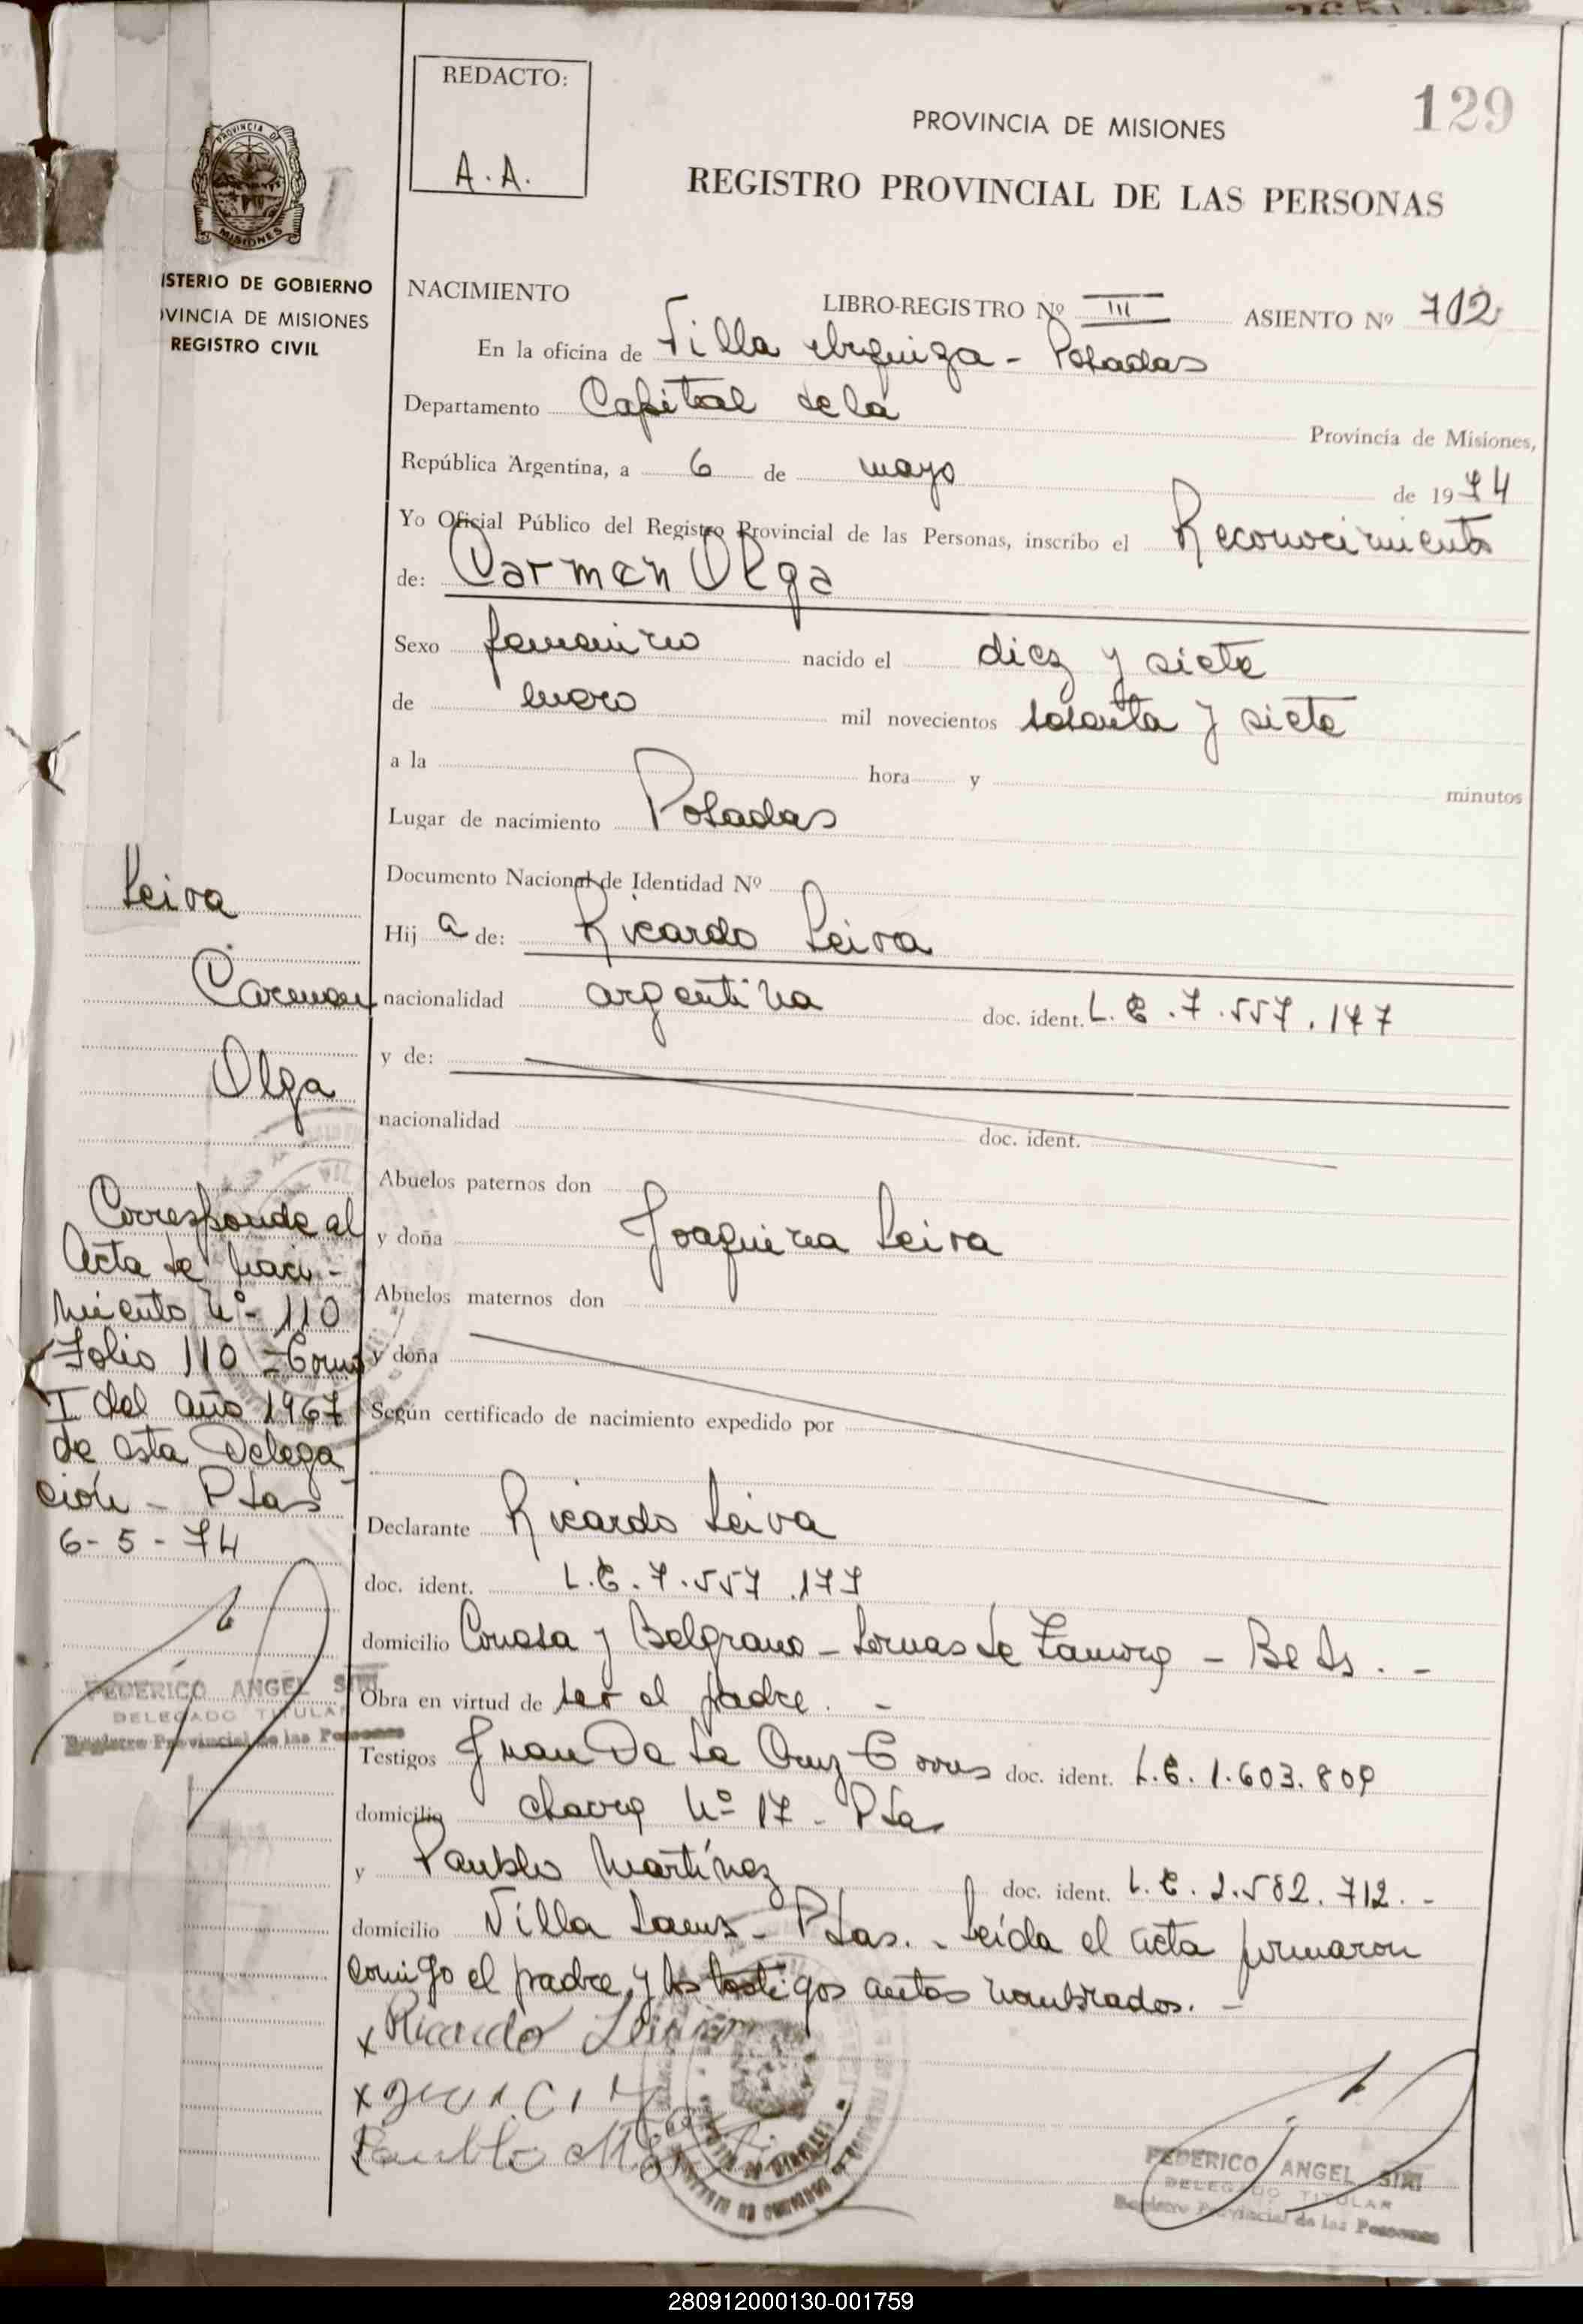 REDACTO:
A.A.
129
PROVINCIA DE MISIONES
REGISTRO PROVINCIAL DE LAS PERSONAS
PROVINCIA DE
MISIONES
ISTERIO DE GOBIERNO
OVINCIA DE MISIONES
REGISTRO CIVIL
NACIMIENTO LIBRO-REGISTRO Nº III ASIENTO Nº 702
En la oficina de Villa Urquiza - Posadas
Departamento Capital de la Provincia de Misiones,
República Argentina, a 6 de mayo de 1974
Yo Oficial Público del Registro Provincial de las Personas, inscribo el Reconocimiento
de: Carmen Olga
Sexo femenino nacido el diez y siete
de enero mil novecientos sesenta y siete
a la hora y minutos
Lugar de nacimiento Posadas
Documento Nacional de Identidad Nº
Hij a de: Ricardo Leiva
nacionalidad argentina doc. ident. L.E. 7.557.177
y de:
nacionalidad doc. ident.
Abuelos paternos don
y doña Joaquina Leiva
Abuelos maternos don
y doña
Según certificado de nacimiento expedido por
Declarante Ricardo Leiva
doc. ident. L.E. 7.557.177
domicilio Conesa y Belgrano - Lomas de Zamora - Bs As. -
Obra en virtud de ser el padre. -
Testigos Juan De La Cruz Torres doc. ident. L.E. 1.603.809
domicilio Nº 17 - Pdas
y Paublo Martínez doc. ident. L.E. 2.582.712. -
domicilio Villa - Pdas. - Leída el acta firmaron
comigo el padre y los testigos antes nombrados. -
x Ricardo Leiva
x
Paublo
Leiva
Carmen
Olga
Corresponde al
Acta de Naci-
miento Nº 110
Folio 110 - Tomo
I del año 1967
de esta Delega
ción - Pdas
6-5-74
FEDERICO ANGEL SIRI
DELEGADO TITULAR
Registro Provincial de las Personas
FEDERICO ANGEL SIRI
DELEGADO TITULAR
Registro Provincial de las Personas
280912000130-001759